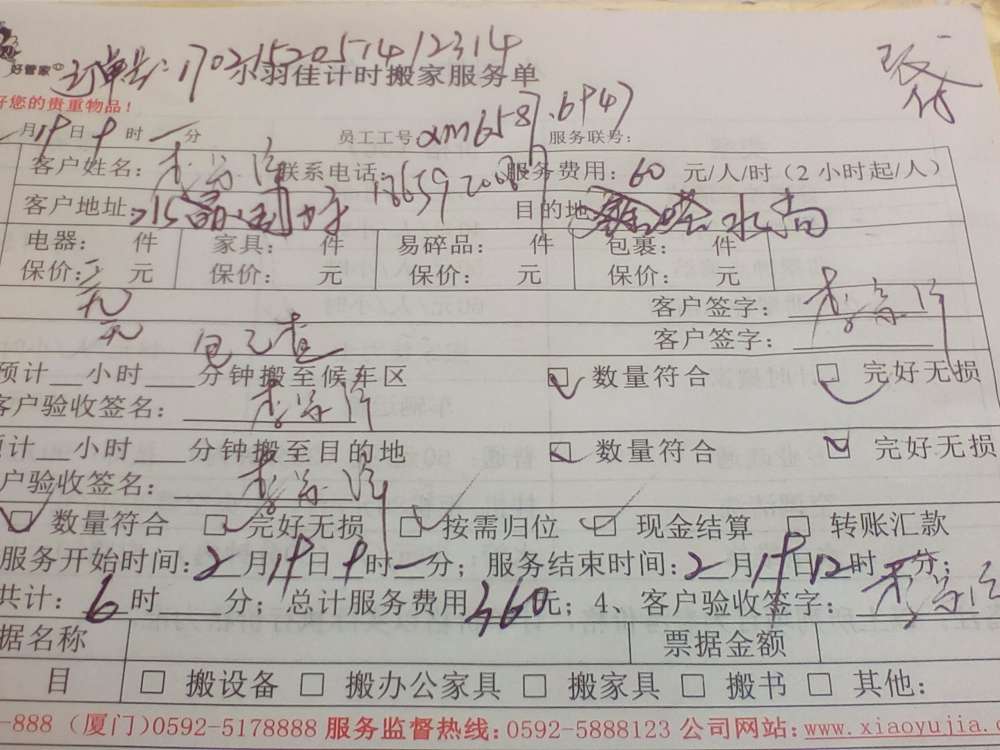 订单号:170215205741 2314
好管家 小羽佳计时搬家服务单
好您的贵重物品!
月19日9时 分 员工工号: xm658 .6947 服务联号:
客户姓名: 联系电话: 服务费用:60 元/人/时(2小时起/人)
客户地址: 目的地: 水尚
电器: 件 家具: 件 易碎品: 件 包裹: 件
保价: 元 保价: 元 保价: 元 保价: 元
无 客户签字:
无 客户签字:
包已查
预计__小时___分钟搬至候车区 数量符合 完好无损
客户验收签名:
预计__小时___分钟搬至目的地 数量符合 完好无损
户验收签名:
数量符合 完好无损 按需归位 现金结算 转账汇款
服务开始时间:2月19日9时 分;服务结束时间:2月19日12时 分;
共计:6时 分;总计服务费用360元;4、客户验收签字:
据名称 票据金额
目 搬设备 搬办公家具 搬家具 搬书 其他:
-888 (厦门)0592-5178888 服务监督热线:0592-5888123 公司网站:www.xiaoyujia.c